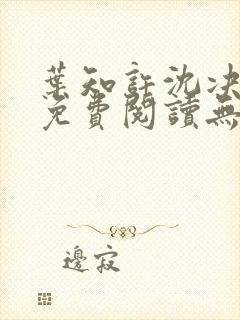 葉知許沈决
免費閱讀無
邊寂